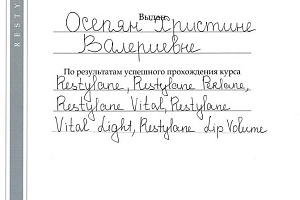 RESTY
Выдано:
Осепян Кристине
Валериевне
По результатам успешного прохождения курса
Restylane, Restylane Perlane,
Restylane Vital, Restylane
Vital Light, Restylane Lip Volume